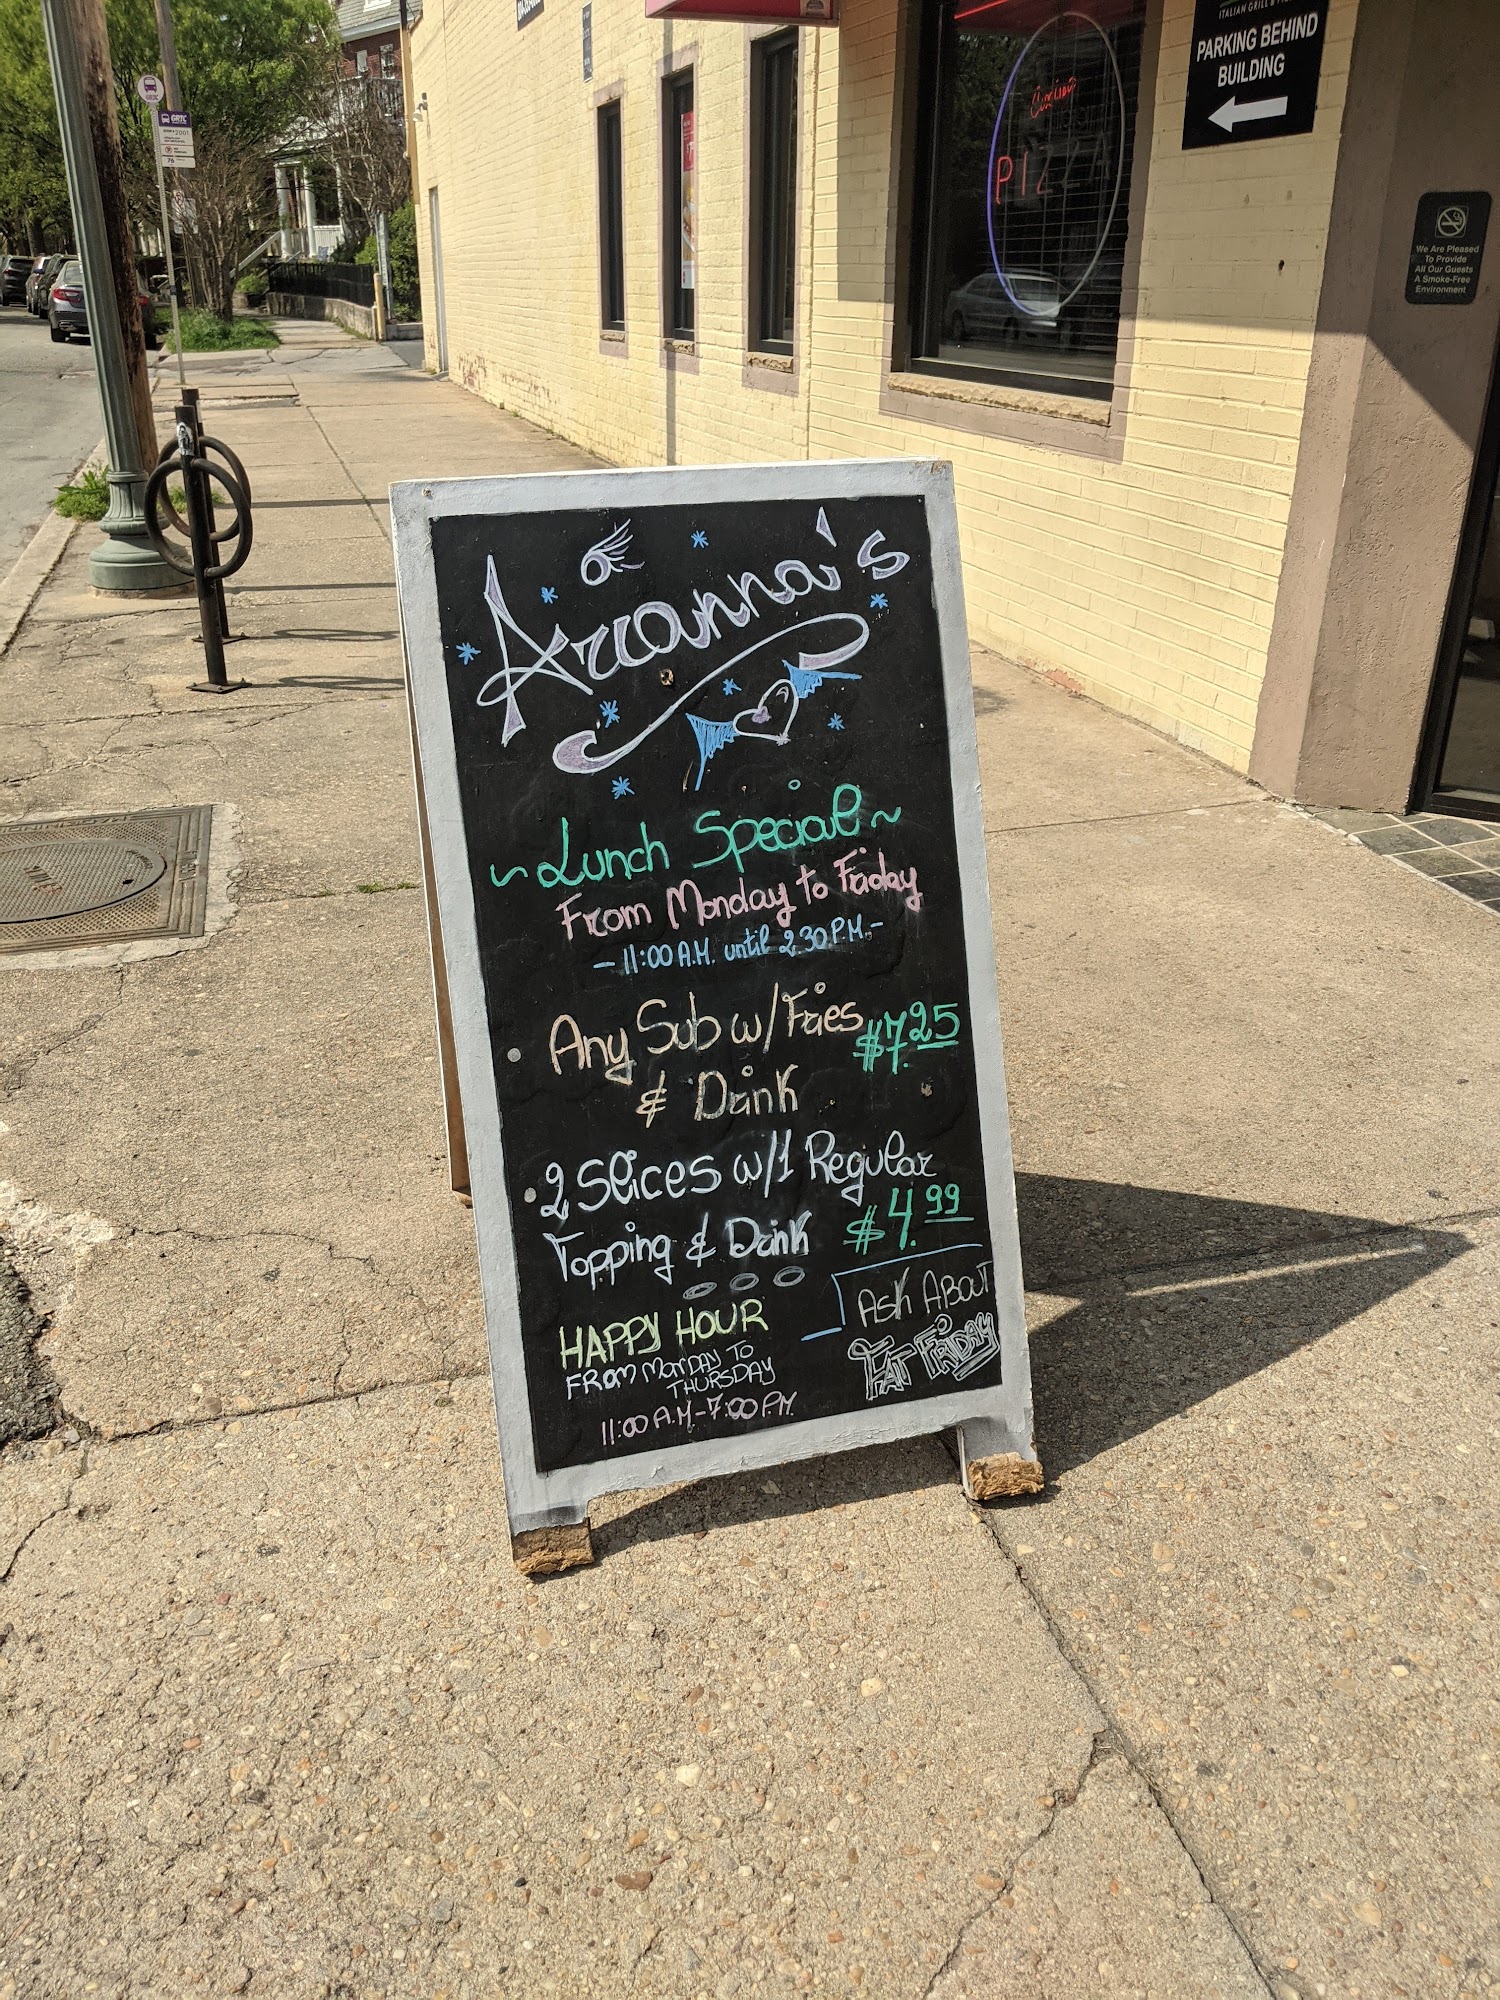 Arianna's
~ Lunch Special ~
From Monday to Friday
- 11:00 A.M. until 2.30 P.M. -
• Any Sub w/Fries $7.25
& Drink
• 2 Slices w/1 Regular
Topping & Drink $4.99
HAPPY HOUR
FROM MONDAY TO
THURSDAY
11:00 A.M-7:00 PM
ASK ABOUT
FAT FRIDAY
ITALIAN GRILL &
PARKING BEHIND
BUILDING
PIZZA
We Are Pleased
To Provide
All Our Guests
A Smoke-Free
Environment
GRTC
2001
76